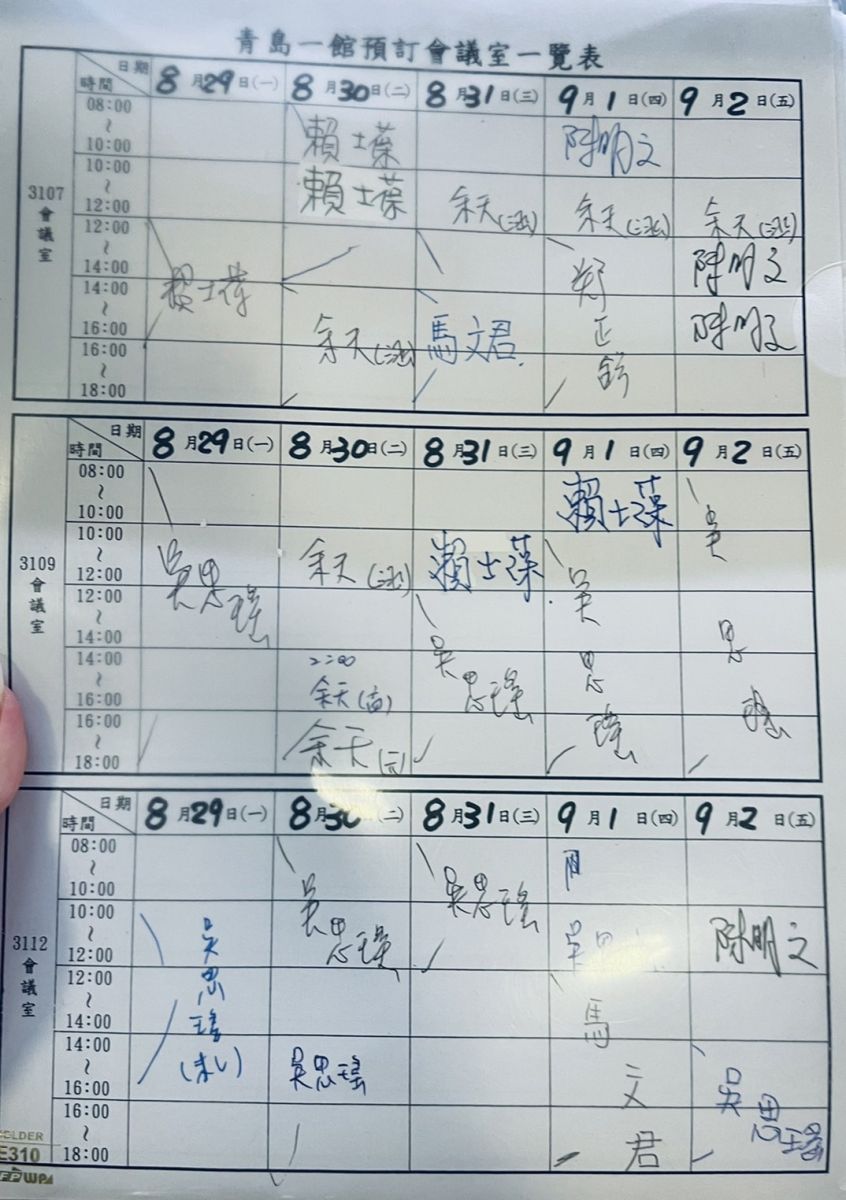 青島一館預訂會議室一覽表
日期 8月29日(一) 8月30日(二) 8月31日(三) 9月1日(四) 9月2日(五)
時間
3107會議室
08:00~10:00 賴士葆 陳明文
10:00~12:00 賴士葆 余天 余天 余天
12:00~14:00 陳明文
14:00~16:00 賴士葆 余天 馬文君 鄭正鈐 陳明文
16:00~18:00
日期 8月29日(一) 8月30日(二) 8月31日(三) 9月1日(四) 9月2日(五)
時間
3109會議室
08:00~10:00 賴士葆 吳
10:00~12:00 吳思瑤 余天 賴士葆 吳
12:00~14:00 思
14:00~16:00 2:00 余天(高) 吳思瑤 思 瑤
16:00~18:00 余天 瑤
日期 8月29日(一) 8月30日(二) 8月31日(三) 9月1日(四) 9月2日(五)
時間
3112會議室
08:00~10:00 吳思瑤 吳思瑤
10:00~12:00 吳思瑤 吳思 陳明文
12:00~14:00 馬
14:00~16:00 吳思瑤 文 吳思瑤
16:00~18:00 君
E310